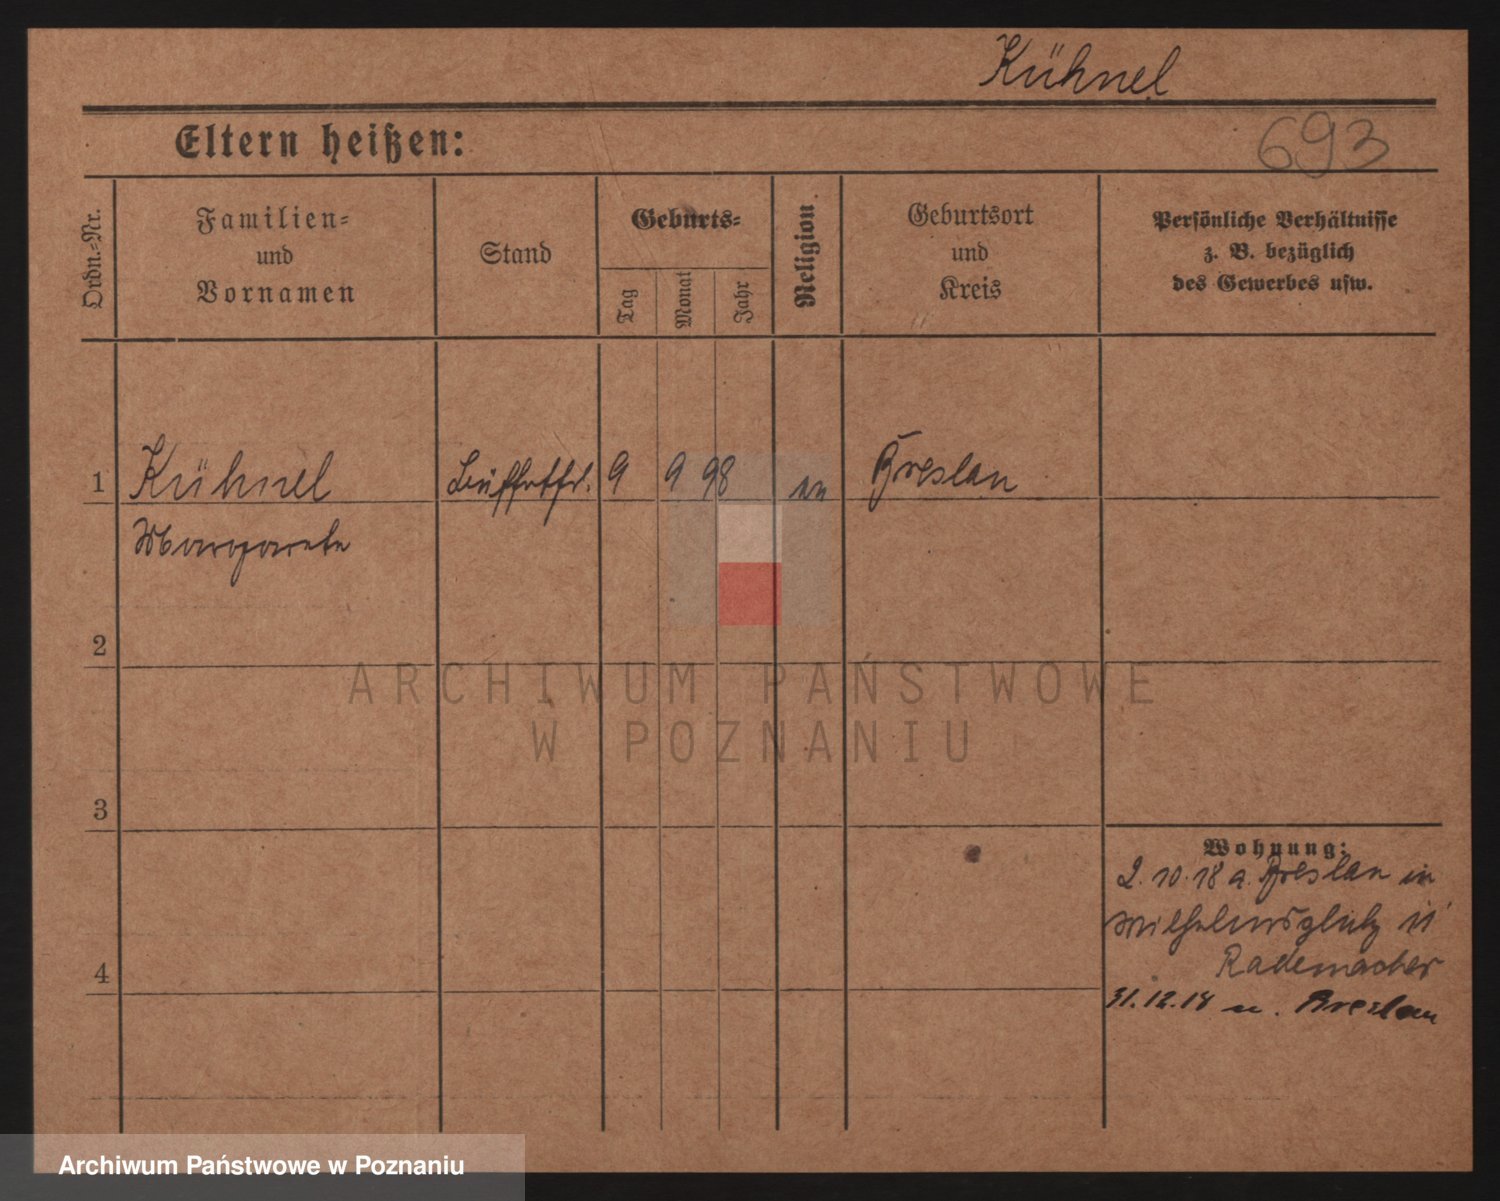 Kühnel
693
Eltern heißen:
Ordn.-Nr.
Familien-
und
Vornamen
Stand
Geburts-
Tag
Monat
Jahr
Religion.
Geburtsort
und
Kreis
Persönliche Verhältnisse
z. B. bezüglich
des Gewerbes usw.
1 Kühnel 9 9 98 Breslau
Margarete
2
3
4
Wohnung:
2.10.18 a. Breslau in
11
Rademacher
31.12.18 n. Breslau
ARCHIWUM PAŃSTWOWE
W POZNANIU
Archiwum Państwowe w Poznaniu